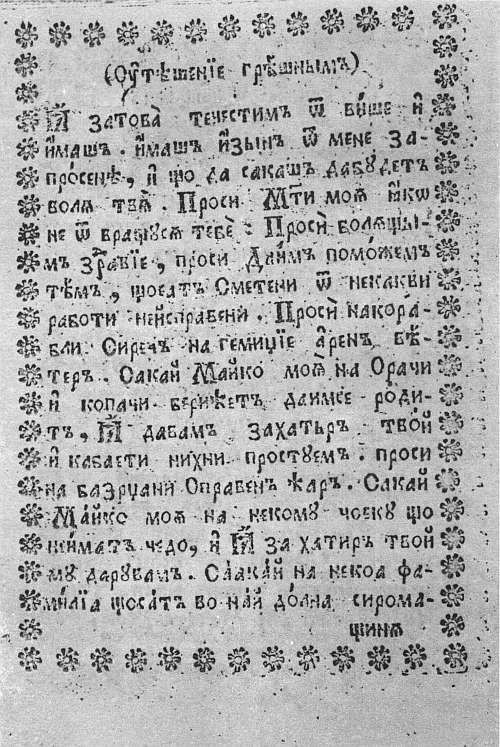 (Оу҆тѣшенїе грѣшнымъ)
И҆ затова̀ течестимъ ѿ ви́ше и҆
и҆машъ. и҆машъ и҆зынъ ѿ мене за-
просенѣ, и҆ що да сакашъ дабꙋдетъ
волѧ твѧ̀. Проси Мт҃и моѧ ꙗ҆кѡ
не ѿ вращꙋсѧ тебѐ: Просѝ болѧщы-
мъ здра́вїе, проси Даи́мъ помо́жемъ
тѣмъ, щосатъ Сметени ѿ некакви
работи неи́справени. Просѝ накора́-
бли Сиречъ на гемиџїе а҆ренъ вѣ-
теръ. Сакай Майко моѧ̀ на Орачи
и҆ копачи берикетъ даимсе роди-
тъ, И҆ давамъ захатъръ тво́й
и҆ кабаети нихни простꙋемъ. проси
на базрџани Оправенъ ꙗ҆ръ. Сакай
Ма́йко моѧ на некомꙋ чоекꙋ що
не́иматъ чедо, и҆ И҆ за хатиръ твой
мꙋ дарꙋвамъ. Сакай на некоа фа-
ми́лїа щосатъ во най до́лна сирома-
щинѧ